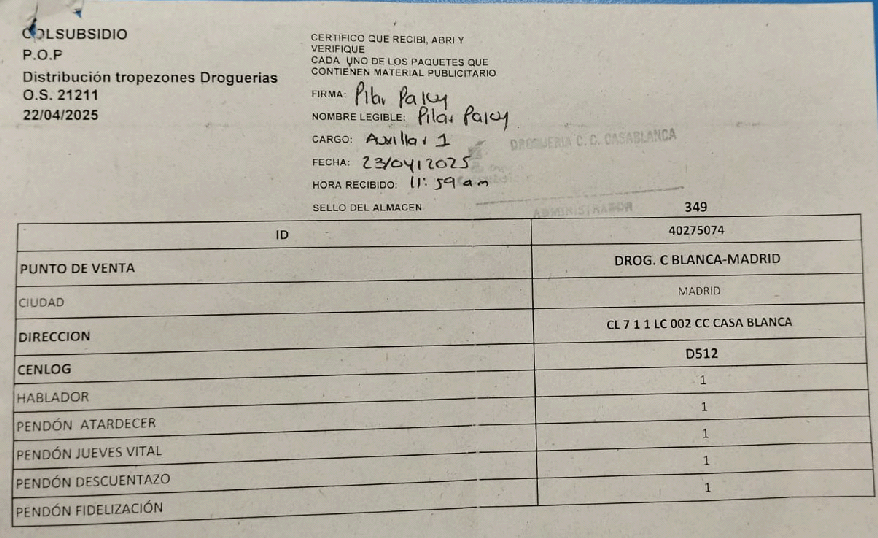 COLSUBSIDIO
P.O.P
Distribución tropezones Droguerias
O.S. 21211
22/04/2025
CERTIFICO QUE RECIBI, ABRI Y
VERIFIQUE
CADA UNO DE LOS PAQUETES QUE
CONTIENEN MATERIAL PUBLICITARIO
FIRMA: Pilar
NOMBRE LEGIBLE: Pilar
CARGO: Auxiliar 1
FECHA: 23/04/2025
HORA RECIBIDO: 11:59 am
SELLO DEL ALMACEN
DROGUERIA C. C. CASABLANCA
ADMINISTRADOR
349
ID 40275074
PUNTO DE VENTA DROG. C BLANCA-MADRID
CIUDAD MADRID
DIRECCION CL 7 1 1 LC 002 CC CASA BLANCA
CENLOG D512
HABLADOR 1
PENDÓN ATARDECER 1
PENDÓN JUEVES VITAL 1
PENDÓN DESCUENTAZO 1
PENDÓN FIDELIZACIÓN 1